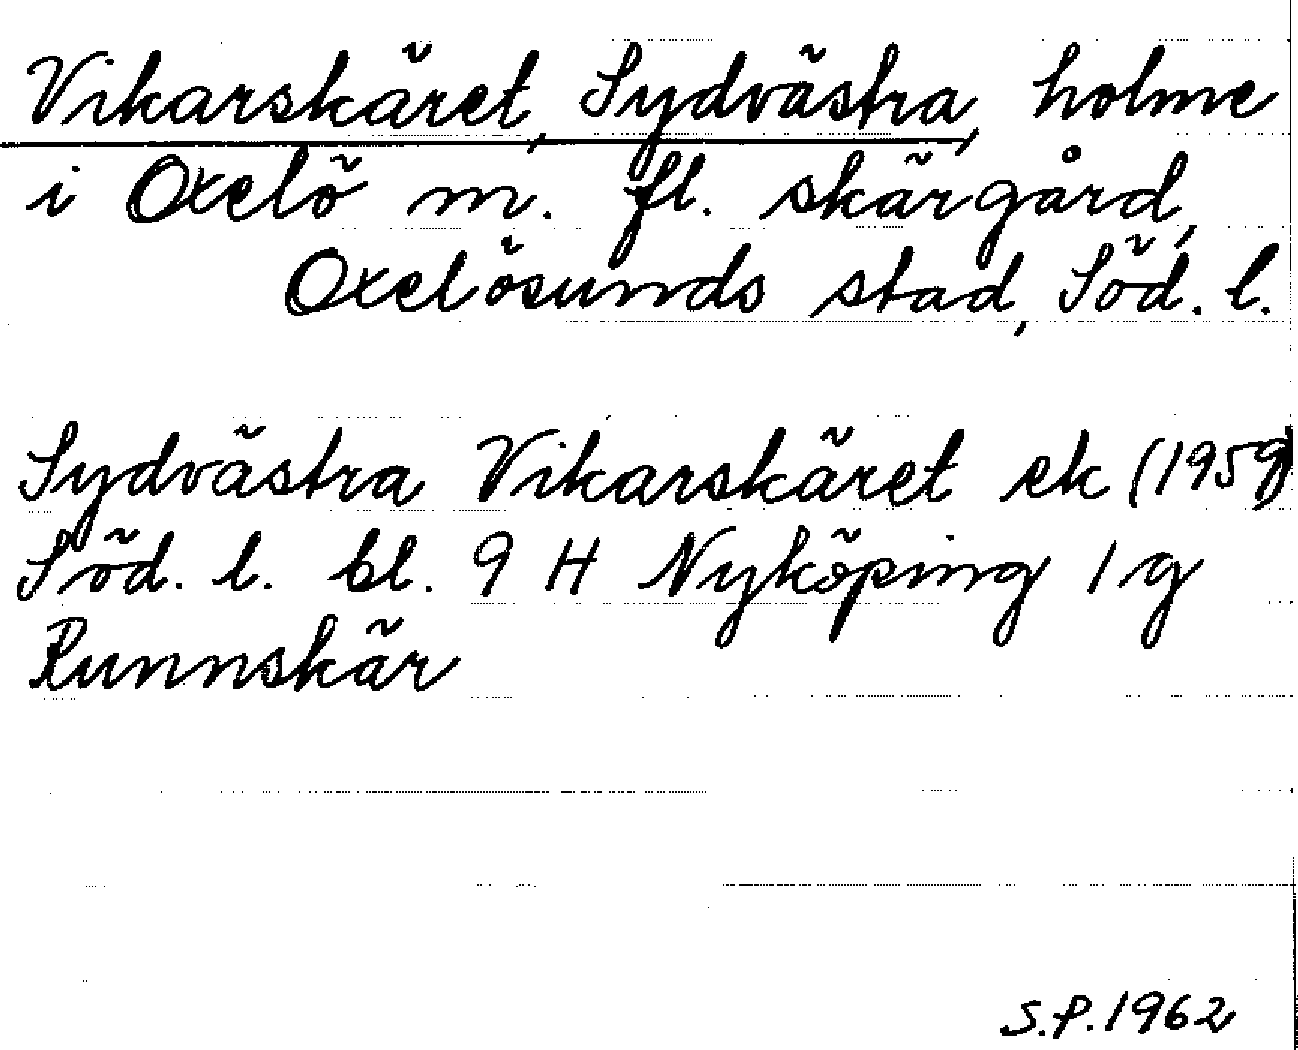 Vikarskäret, Sydvästra, holme
i Oxelö m. fl. skärgård,
Oxelösunds stad, Söd. l.
Sydvästra Vikarskäret ek (1959)
Söd. l. bl. 9 H Nyköping 1 g
Runnskär
S.P. 1962